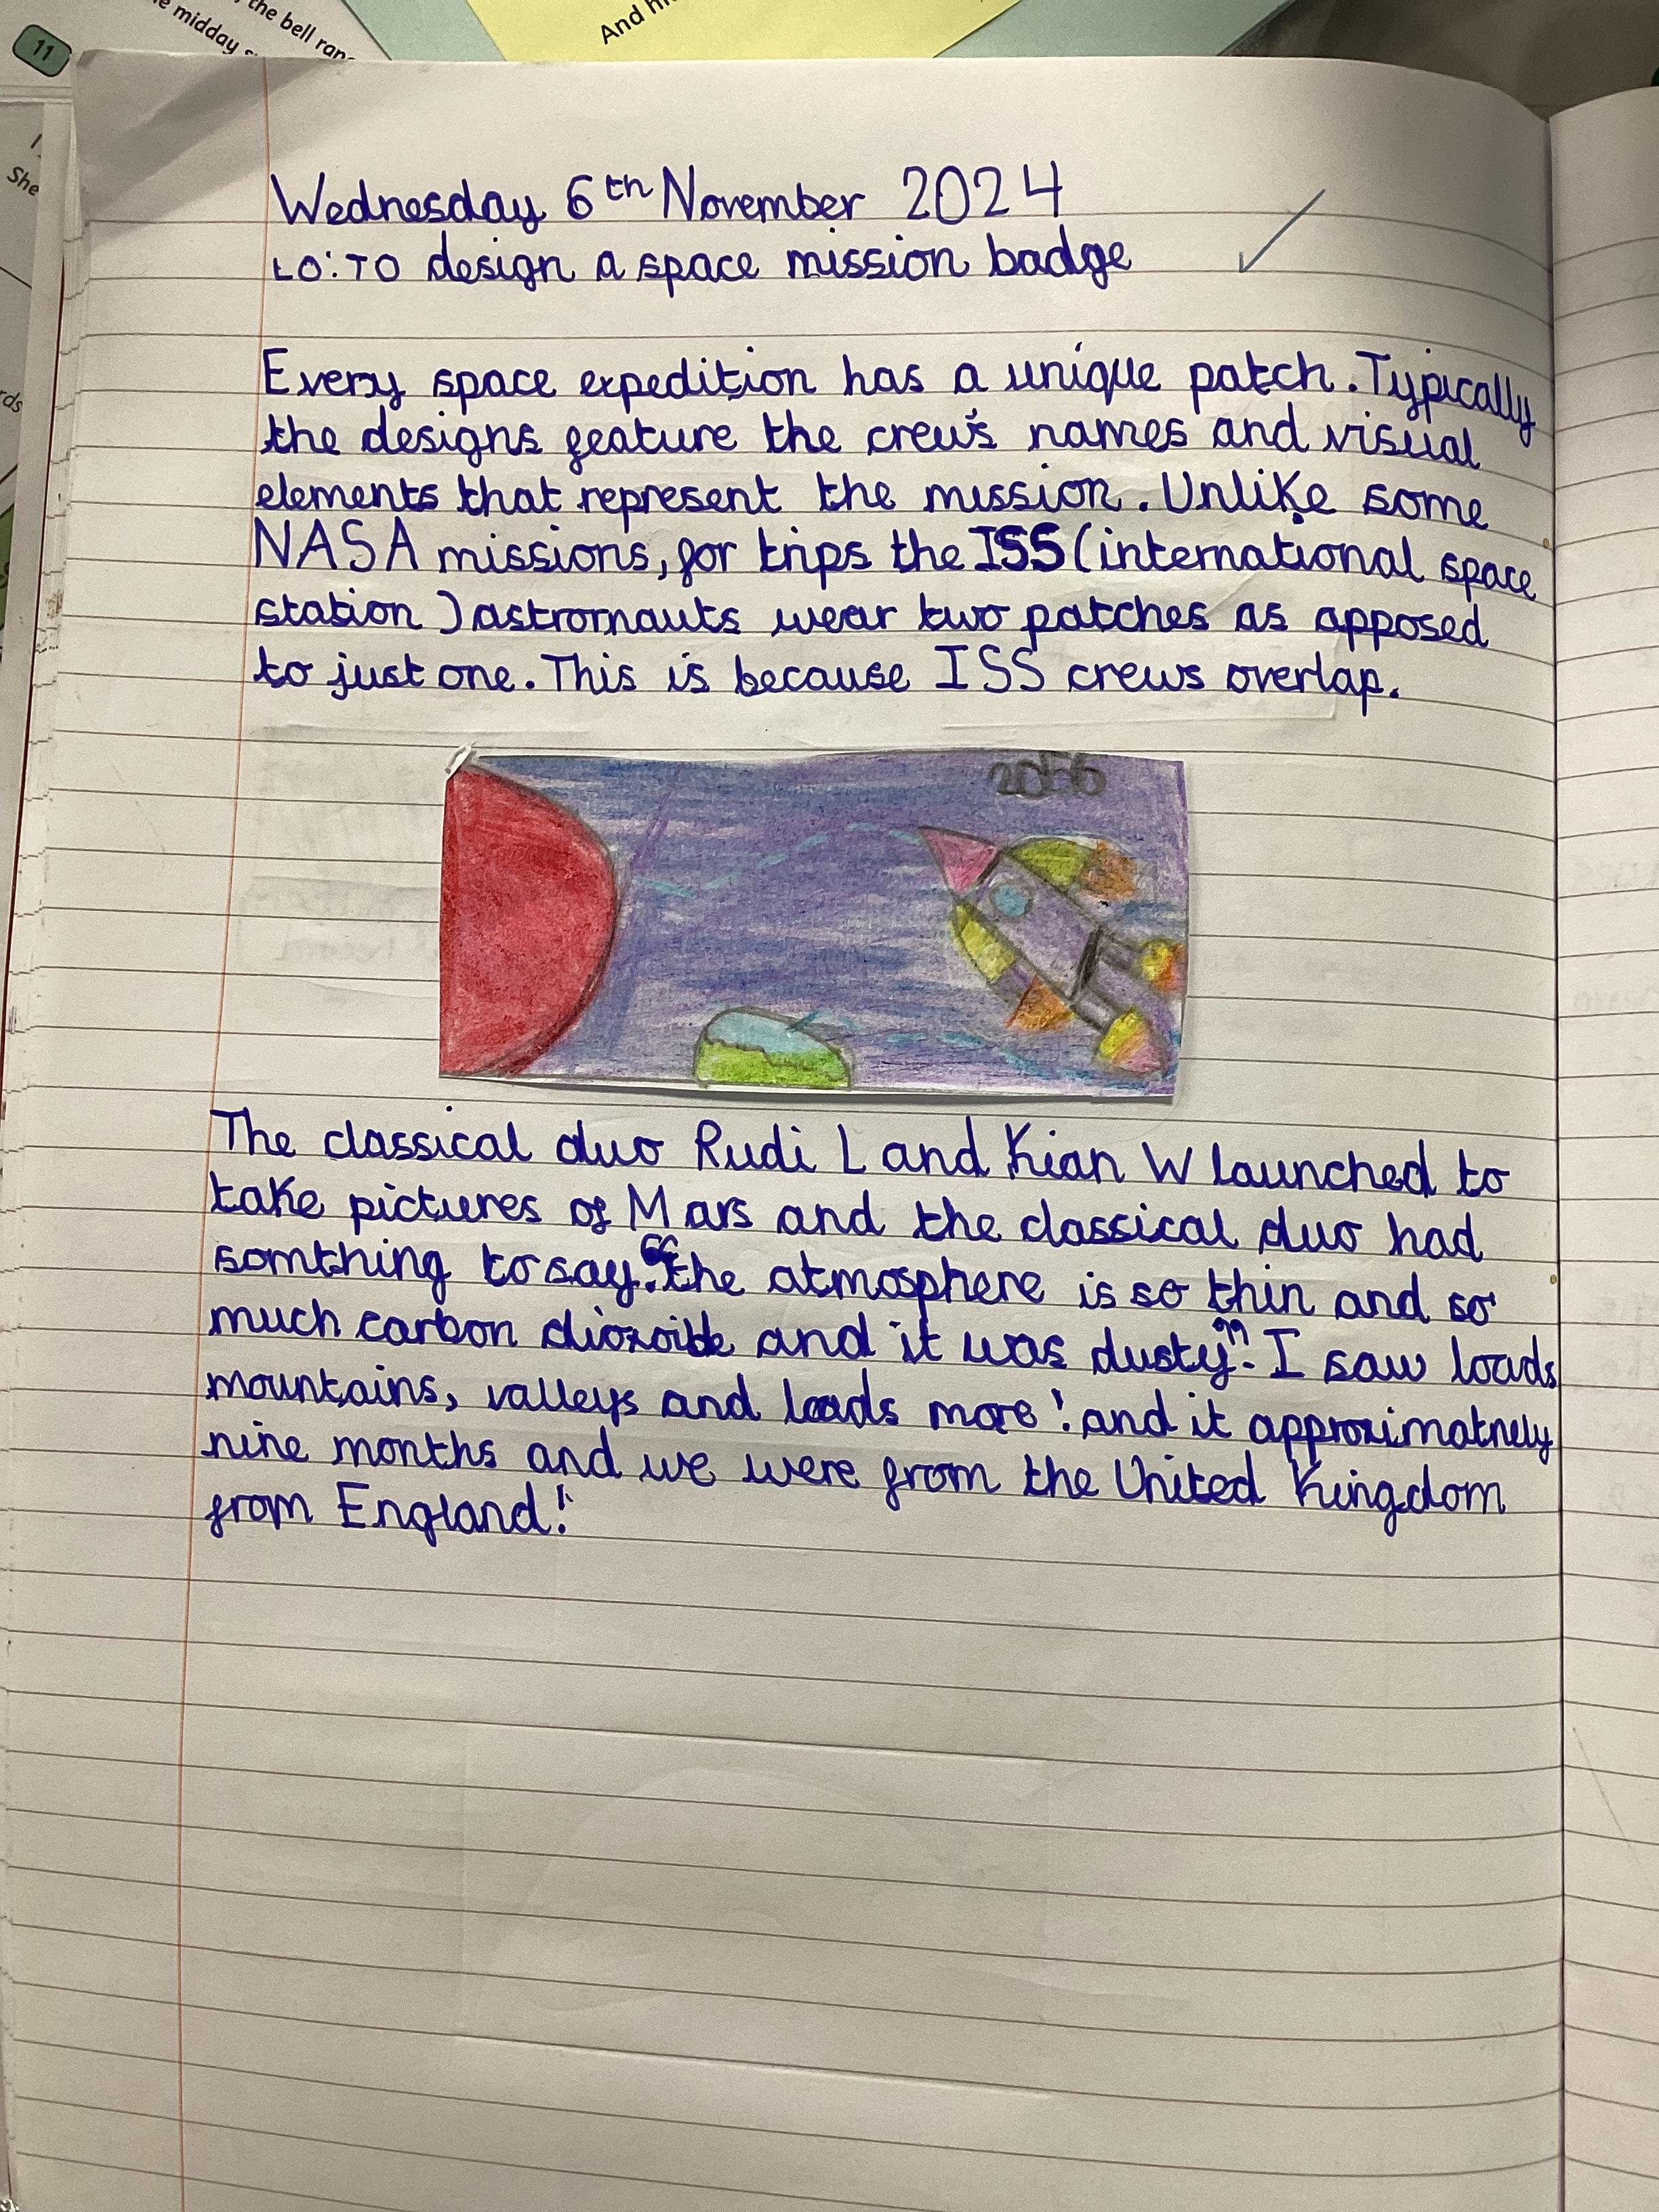 11
the bell ran
e midday s
And hi
She
rds
Wednesday 6th November 2024
LO: TO design a space mission badge
Every space expedition has a unique patch. Typically
the designs feature the crew's names and visual
elements that represent the mission. Unlike some
NASA missions, for trips the ISS (international space
station) astrornauts wear two patches as apposed
to just one. This is because ISS crews overlap.
The classical duo Rudi L and Kian W launched to
take pictures of Mars and the classical duo had
somthing to say. “the atmosphere is so thin and so
much carbon and it was dusty”. I saw loads
mountains, valleys and loads more! and it approximatnely
nine months and we were from the United Kingdom
from England!